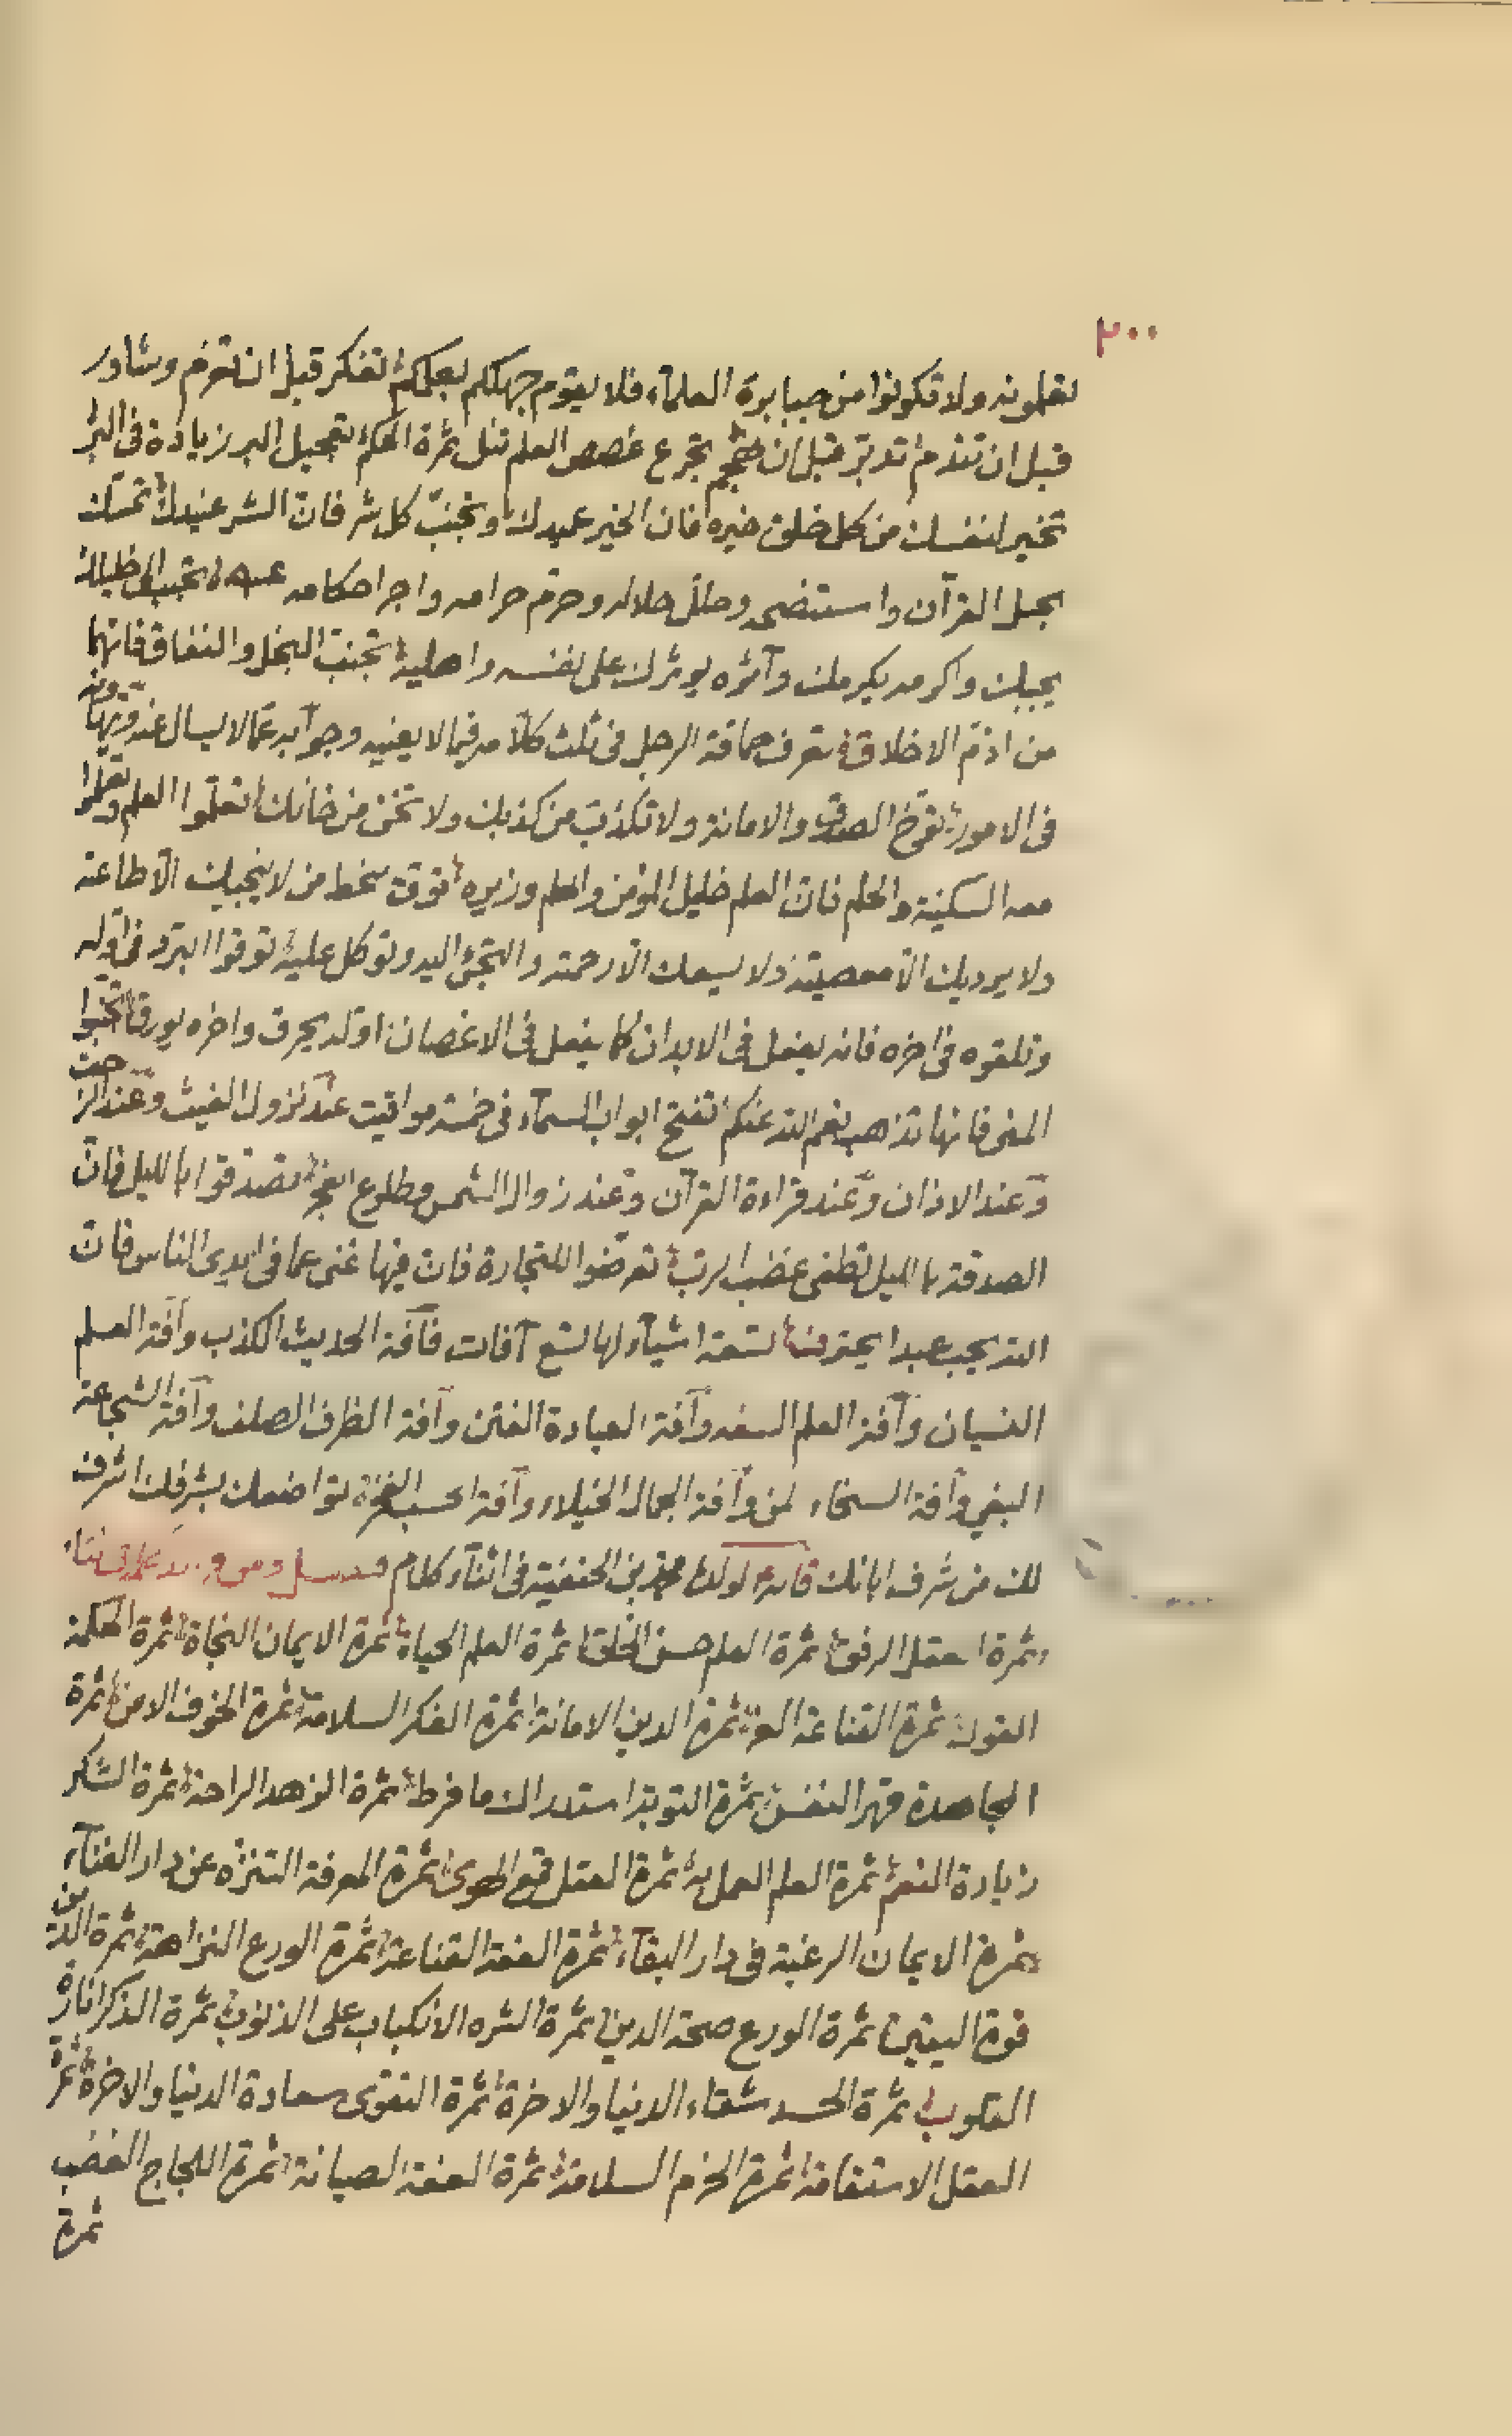 ٢٠٠
تعلمونه ولا تكونوا من جبابرة العلمآء فلا يقوم جهلكم بعلمكم تفكر قبل ان تعزم وشاور
قبل ان تقدم تدبر قبل ان تهجم تجرع غصص العلم تنل ثمرة الحكم تعجيل البر زيادة فى البر
تخير لنفسك من كل خلق خيره فان الخير عيدك وتجنب كل شر فان الشر عنيدك تمسك
بحبل القرآن واستنصحه وحلل حلاله وحرم حرامه واجر احكامه تحبب الى خليلك
يحببك واكرمه يكرمك وآثره يوثرك على نفسه واهليه تجنب البخل والنفاق فانهما
من اذم الاخلاق تعرف حماقة الرجل فى ثلث كلامه فيما لا يعنيه وجوابه عما لا يسال عنه وتهونه
فى الامور توخ الصدق والامانة ولا تكذب من كذبك ولا تخن من خانك تعلموا العلم وتعلموا
معه السكينة والحلم فان العلم خليل المؤمن والحلم وزيره توق سخط من لا ينجيك الا طاعته
ولا يرديك الا معصيته ولا يسعك الا رحمته والتجئ اليه وتوكل عليه توقوا البرد فى اوله
وتلقوه فى اخره فانه يفعل فى الابدان كما يفعل فى الاغصان اوله يحرق واخره يورق تجنبوا
المنى فانها تذهب بنعم الله عنكم تفتح ابواب السمآء فى خمسة مواقيت عند نزول الغيث وعند الزحف
وعند الاذان وعند قراءة القرآن وعند زوال الشمس وطلوع الفجر تصدقوا بالليل فان
الصدقة بالليل تطفى غضب الرب تعرضوا للتجارة فان فيها غنى عما فى ايدى الناس فان
الله يحب عبدا يحترف تسعة اشيآء لها تسع آفات فآفة الحديث الكذب وآفة العلم
النسيان وآفة الحلم السفه وآفة العبادة الفتن وآفة الظرف الصلف وآفة الشجاعة
البغي وآفة السخاء المن وآفة الجمال الخيلاء وآفة الحسب الفخر تواضعك بشرفك اشرف
لك من شرف ابائك قاله لولده محمد بن الحنفية فى اثنآء كلام
ثمرة العقل الرفق ثمرة العلم حسن الخلق ثمرة العلم الحياة ثمرة الايمان النجاة ثمرة الحكمة
الفوز ثمرة القناعة العز ثمرة الدين الامانة ثمرة الفكر السلامة ثمرة الخوف الامن ثمرة
المجاهدة قهر النفس ثمرة التوبة استدراك ما فرط ثمرة الزهد الراحة ثمرة الشكر
زيادة النعم ثمرة العلم العمل به ثمرة العقل قمع الهوى ثمرة المعرفة التنزه عن دار الفنآء
ثمرة الايمان الرغبة فى دار البقآء ثمرة العفة القناعة ثمرة الورع النزاهة ثمرة الدين
قوة اليقين ثمرة الورع صحة الدين ثمرة الشره الانكباب على الذنوب ثمرة الذكر انارة
القلوب ثمرة الحسد شقاء الدنيا والاخرة ثمرة التقوى سعادة الدنيا والاخرة ثمرة
العقل الاستقامة ثمرة الحزم السلامة ثمرة العفة الصيانة ثمرة اللجاج الغضب
ثمرة